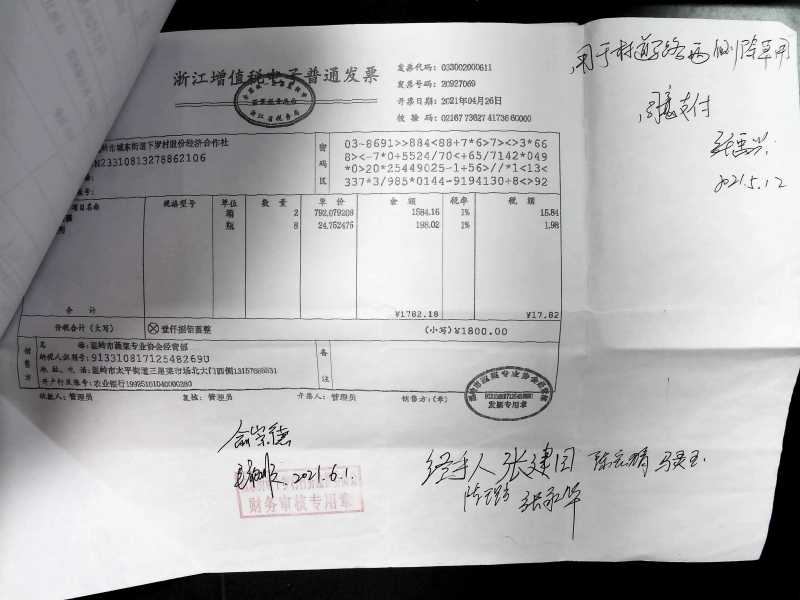 浙江增值税电子普通发票
发票代码：033002000611
发票号码：20927069
开票日期：2021年04月26日
校 验 码：02167 73627 41736 60000
浙江省税务局
用于村道路两侧除草用
同意支付
2021.5.12
温岭市城东街道下罗村股份经济合作社
N2331081327886210​6
密码区
03-8691>>884<88+7*6>7><>3*66
8><-7*0+5524/70<+65/7142*049
*0>20*25449025-1+56>//*1<13<
337*3/985*0144-9194130+8<>92
项目名称 规格型号 单位 数 量 单 价 金 额 税率 税 额
箱 2 792.079208 1584.16 1% 15.84
瓶 8 24.752475 198.02 1% 1.98
合 计 ¥1782.18 ¥17.82
价税合计（大写） 壹仟捌佰圆整 （小写）¥1800.00
销售方
名 称：温岭市蔬菜专业协会经营部
纳税人识别号：91331081712548269U
地 址、电 话：温岭市太平街道三星菜市场北大门四侧13157685531
开户行及账号：农业银行19925101040000280
备注
收款人：管理员 复核：管理员 开票人：管理员 销售方：（章）
发票专用章
俞崇德
2021.6.1.
财务审核专用章
经手人 张建国